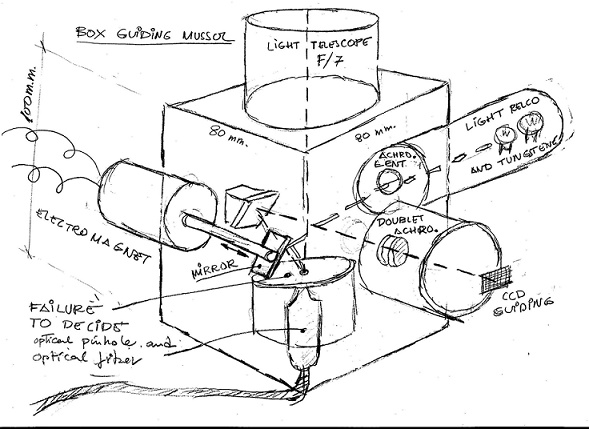 BOX GUIDING MUSSOL
LIGHT TELESCOPE
F/7
100 m.m.
80 mm.
80 mm.
LIGHT RELCO
W W
AND TUNGSTENE
ACHRO.
LENT.
DOUBLET
ACHRO.
ELECTRO MAGNET
MIRROR
CCD
GUIDING
FAILURE
TO DECIDE
optical pinhole and
optical fiber